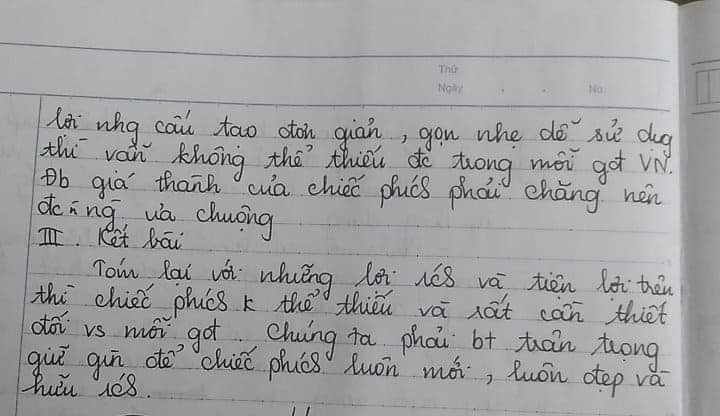 Thứ
Ngày . . No
lợi nhg cấu tạo đơn giản, gọn nhẹ dễ sử dụg
thì vẫn không thể thiếu đc trong mỗi gđt VN.
Đb giá thành của chiếc phíc8 phải chăng nên
đc ña ưa chuộng
III. Kết bài
Tóm lại với những lợi íc8 và tiện lợi trên
thì chiếc phíc8 k thể thiếu và rất cần thiết
đối vs mỗi gđt. Chúng ta phải bt trân trọng
giữ gìn để chiếc phíc8 luôn mới, luôn đẹp và
hữu íc8.